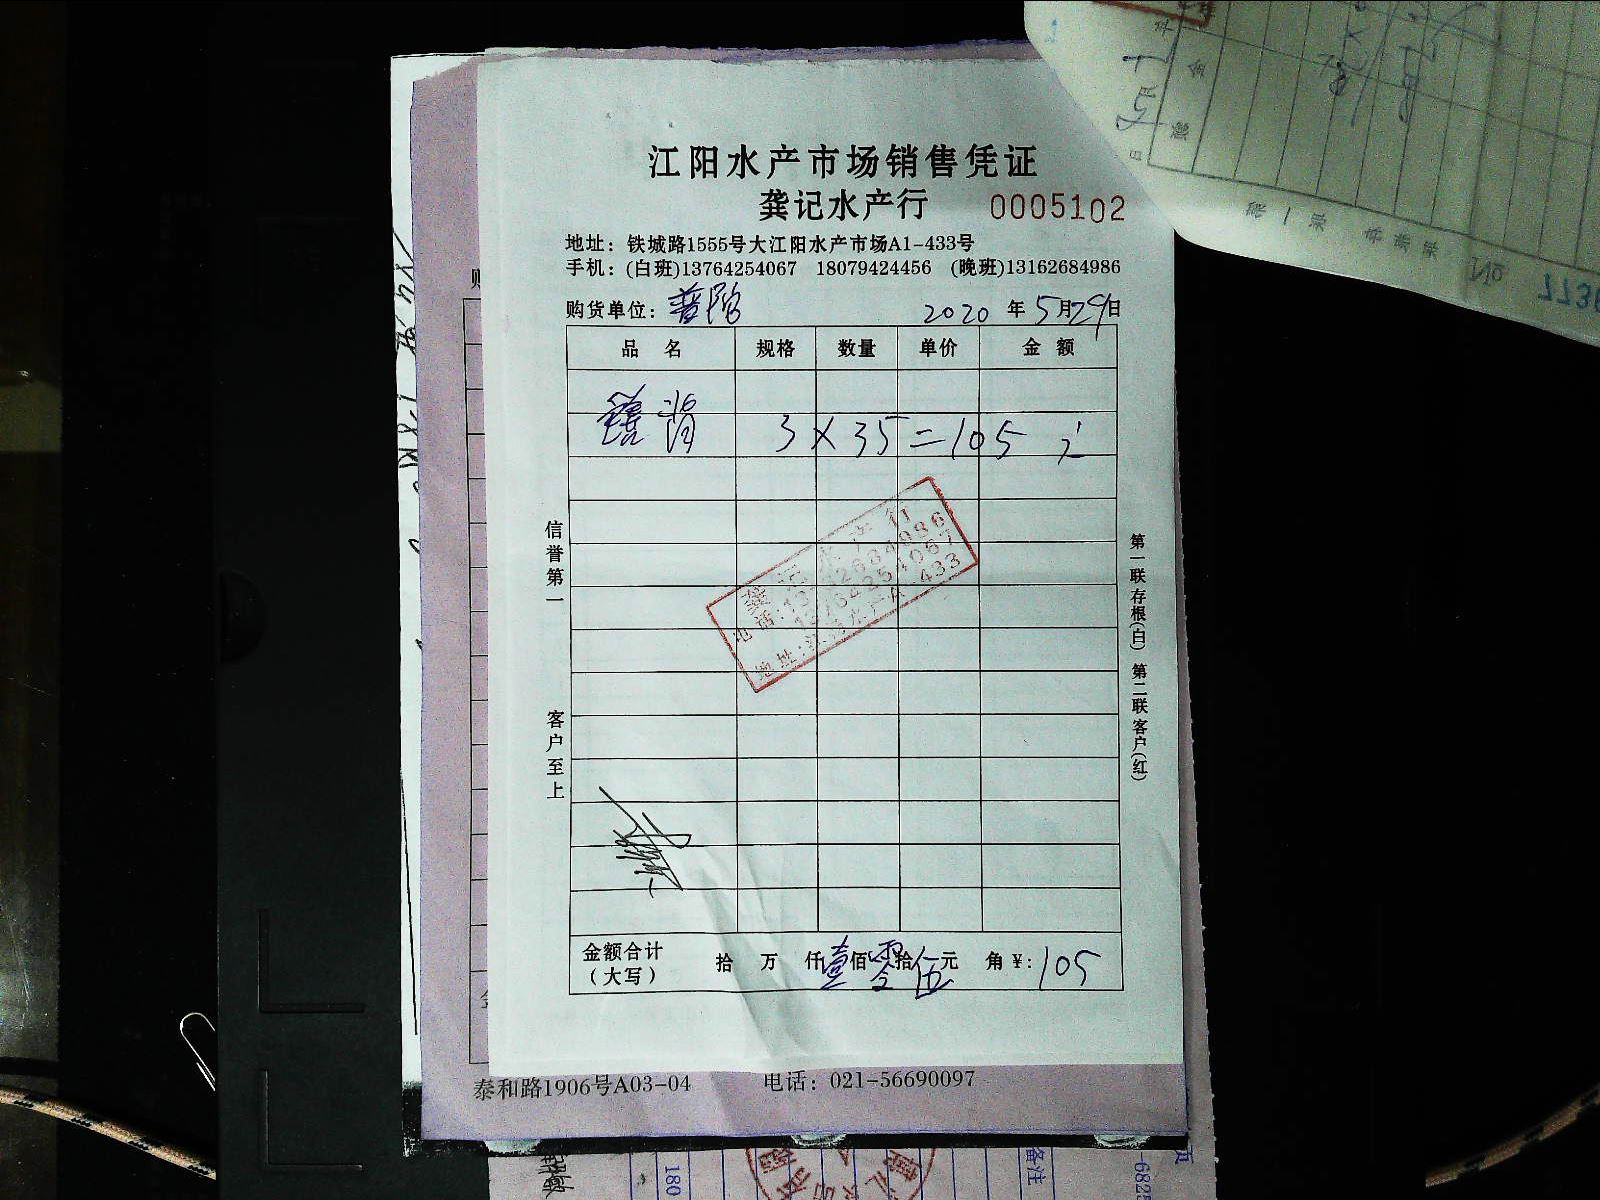 江阳水产市场销售凭证
龚记水产行 0005102
地址：铁城路1555号大江阳水产市场A1-433号
手机：(白班)13764254067 18079424456 (晚班)13162684986
购货单位：普陀 2020 年 5 月 29 日
品 名 规格 数量 单价 金 额
3 × 35 = 105
龚记水产行
电话：13162684986
13764254067
地址：江阳水产A1-433
信誉第一 客户至上
第一联存根(白) 第二联客户(红)
金额合计 拾 万 仟 壹 佰 零 拾 伍 元 角 ¥：105
（大写）
泰和路1906号A03-04 电话：021-56690097
备注
180
No 7736